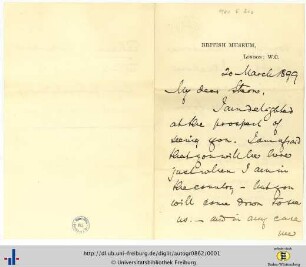 BRITISH MUSEUM,
LONDON: W.C.
20 March 1899
My dear
I am delighted
at the prospect of
seeing you. I am afraid
that you will be here
just when I am in
the country – but you
will come down to see
us. – and in any case
we
http://dl.ub.uni-freiburg.de/diglit/autogr0862/0001
Universitätsbibliothek Freiburg